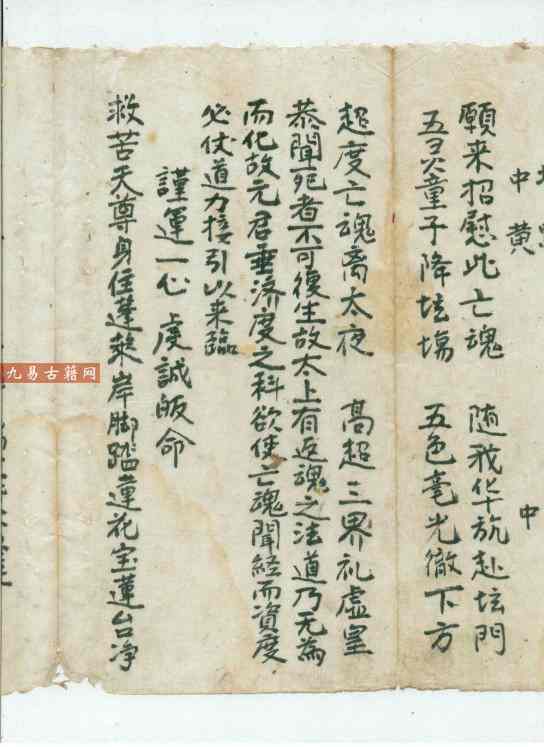 中黄　中
願来招慰此亡魂　随我华旛赴坛門
五灵童子降坛塲　五色毫光徹下方
超度亡魂离太夜　高超三界礼虚皇
恭聞死者不可復生故太上有返魂之法道乃无為
而化故元君垂济度之科欲使亡魂聞经而資度
必仗道力接引以来臨
謹運一心　虔誠皈命
救苦天尊身住蓬莱岸脚踏蓮花宝蓮台净
九易古籍网